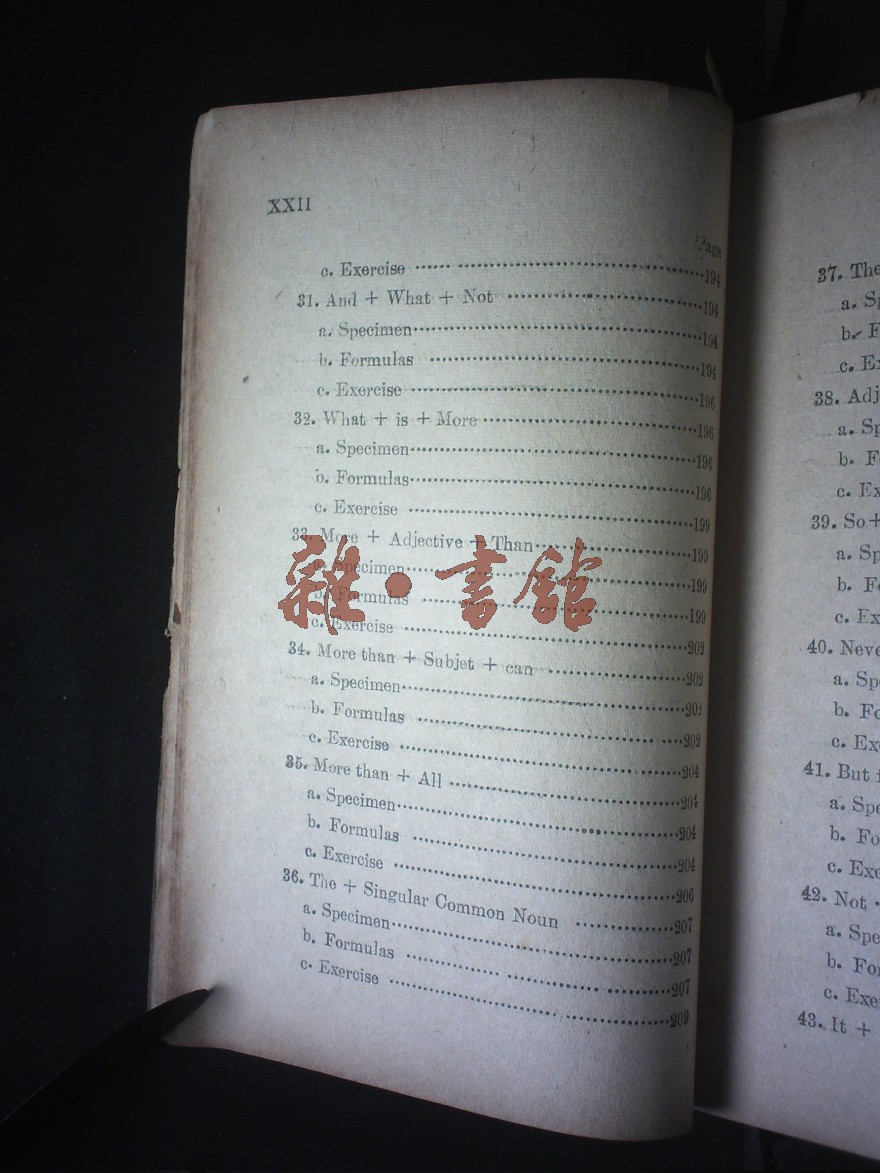 XXII
Page
c. Exercise ........................194
31. And + What + Not ........................194
a. Specimen........................194
b. Formulas ........................194
c. Exercise ........................196
32. What + is + More ........................196
a. Specimen........................196
b. Formulas........................196
c. Exercise ........................199
33. More + Adjective + Than........................199
a. Specimen........................199
b. Formulas ........................199
c. Exercise ........................202
34. More than + Subjet + can ........................202
a. Specimen........................202
b. Formulas ........................202
c. Exercise ........................204
35. More than + All ........................204
a. Specimen........................204
b. Formulas ........................204
c. Exercise ........................206
36. The + Singular Common Noun ........................207
a. Specimen........................207
b. Formulas ........................207
c. Exercise ........................209
雜·書館
37. The
a.
b.
c.
38.
a.
b.
c.
39. So +
a.
b.
c.
40.
a.
b.
c.
41. But
a.
b.
c.
42. Not
a.
b.
c.
43. It +